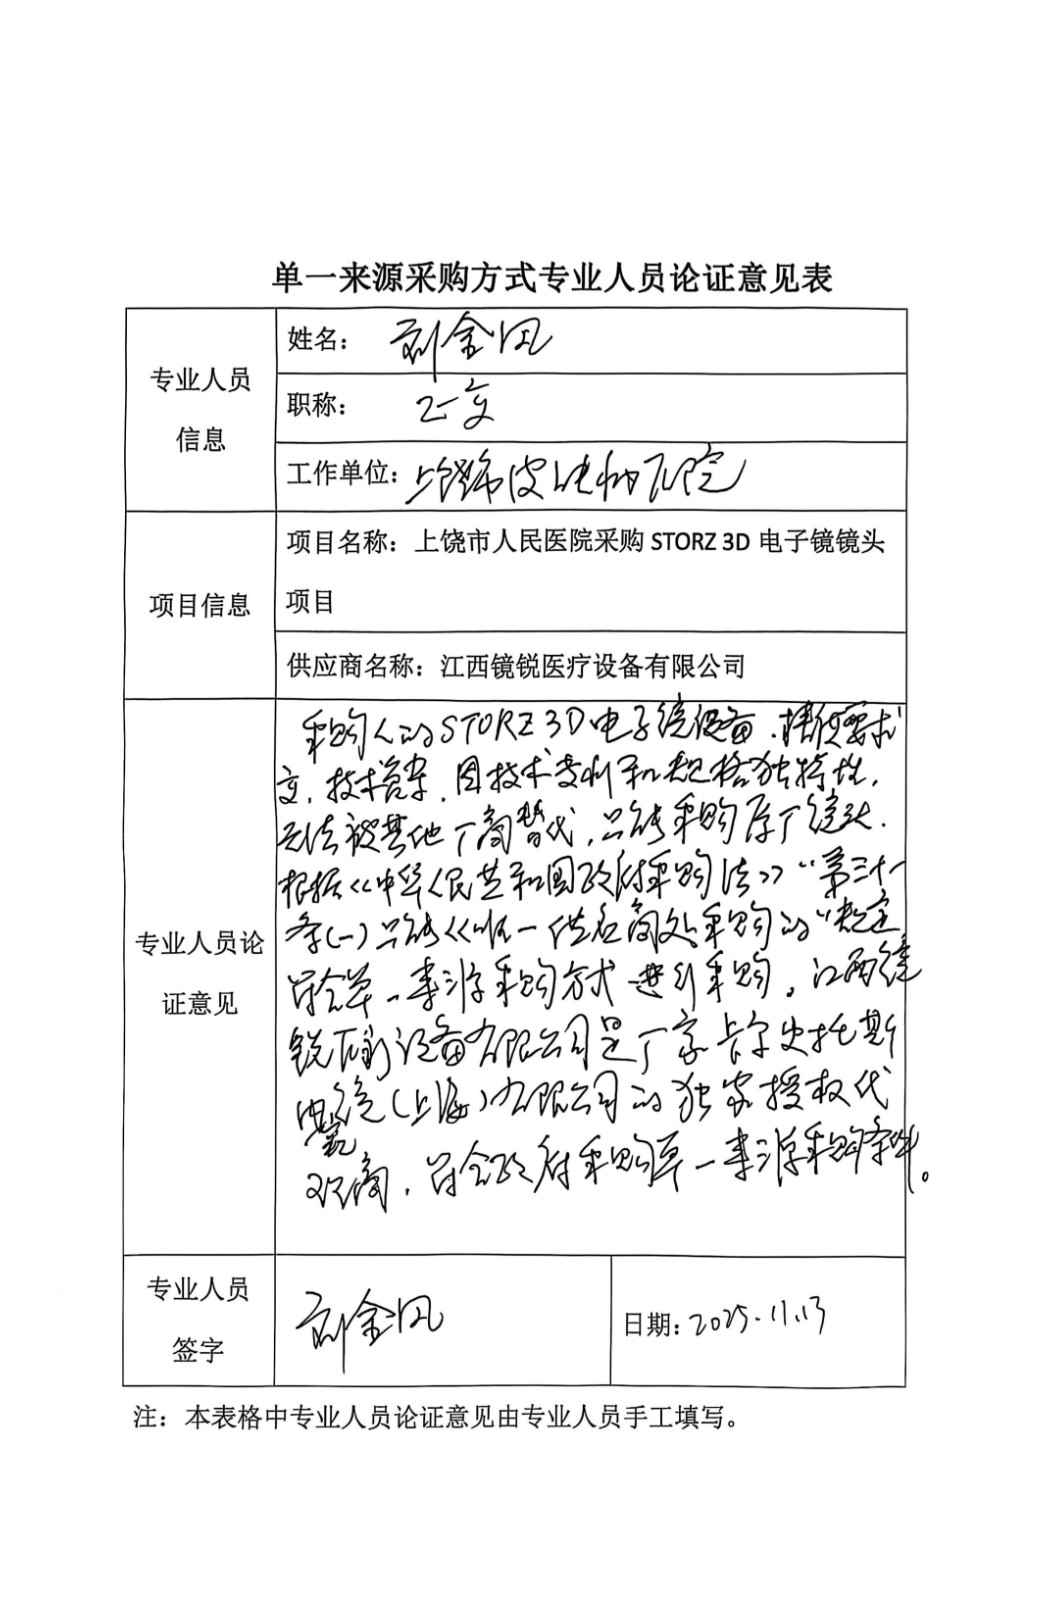 单一来源采购方式专业人员论证意见表
专业人员
信息
姓名：刘金凤
职称：正高
工作单位：上饶市皮肤病医院
项目信息
项目名称：上饶市人民医院采购 STORZ 3D 电子镜镜头
项目
供应商名称：江西镜锐医疗设备有限公司
专业人员论
证意见
采购人的STORZ 3D电子镜设备,精度要求
高,技术复杂,因技术专利和规格独特性,
无法被其他厂商替代,只能采购原厂镜头.
根据《中华人民共和国政府采购法》"第三十一
条(一)只能从唯一供应商处采购的"规定
符合单一来源采购方式进行采购。江西镜
锐医疗设备有限公司是厂家卡尔史托斯
内窥镜(上海)有限公司的独家授权代
理商,符合政府采购单一来源采购条件。
专业人员
签字
刘金凤
日期：2025.11.13
注：本表格中专业人员论证意见由专业人员手工填写。